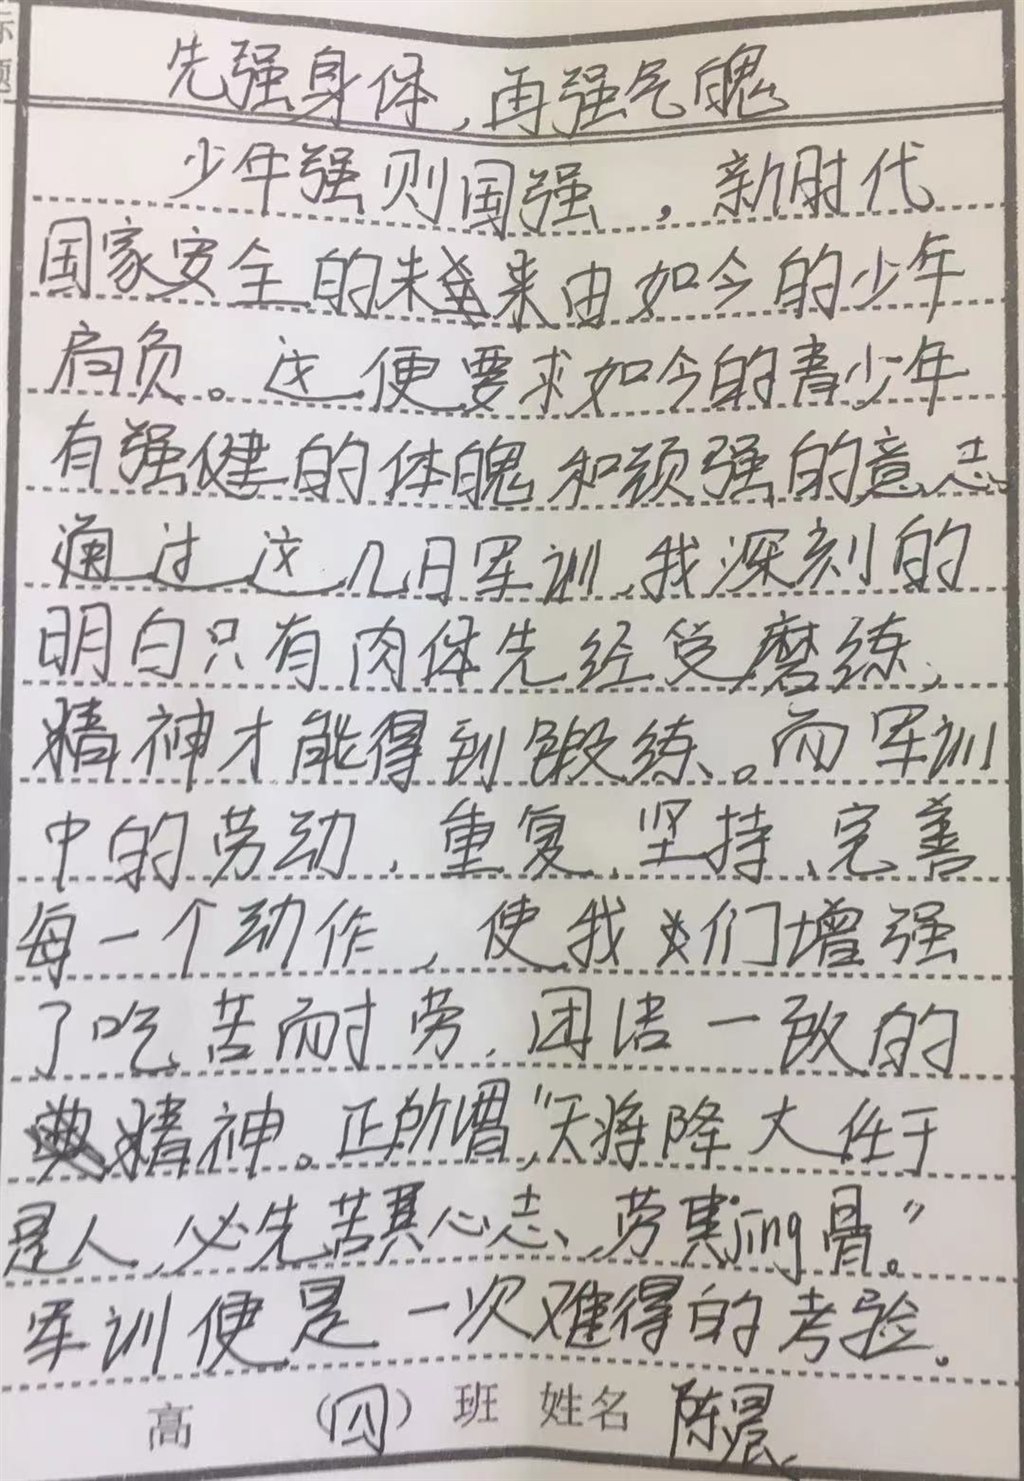 标题
先强身体,再强气魄
少年强则国强,新时代
国家安全的未来由如今的少年
肩负。这便要求如今的青少年
有强健的体魄和顽强的意志。
通过这几日军训,我深刻的
明白只有肉体先经受磨练,
精神才能得到锻练。而军训
中的劳动、重复、坚持、完善
每一个动作,使我们增强
了吃苦而耐劳,团结一致的
精神。正所谓,“天将降大任于
是人,必先苦其心志,劳其jing骨。”
军训便是一次难得的考验。
高 (四)班 姓名 陈晨